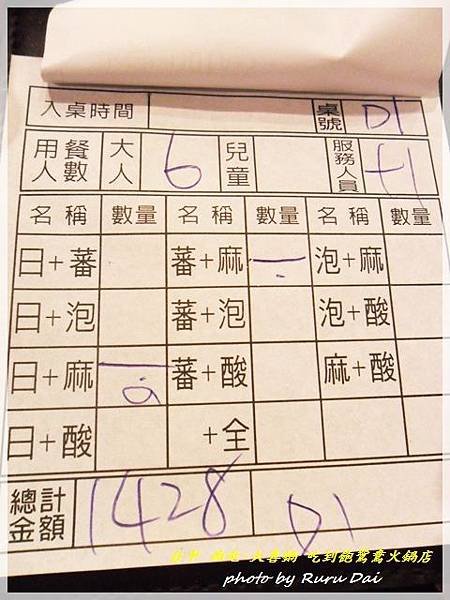 入桌時間 桌號 D1
用餐人數 大人 6 兒童 服務人員
名稱 數量 名稱 數量 名稱 數量
日+蕃 蕃+麻 泡+麻
日+泡 蕃+泡 泡+酸
日+麻 蕃+酸 麻+酸
日+酸 +全
總計金額 1428 D1
吃到飽鴛鴦火鍋店
photo by Ruru Dai